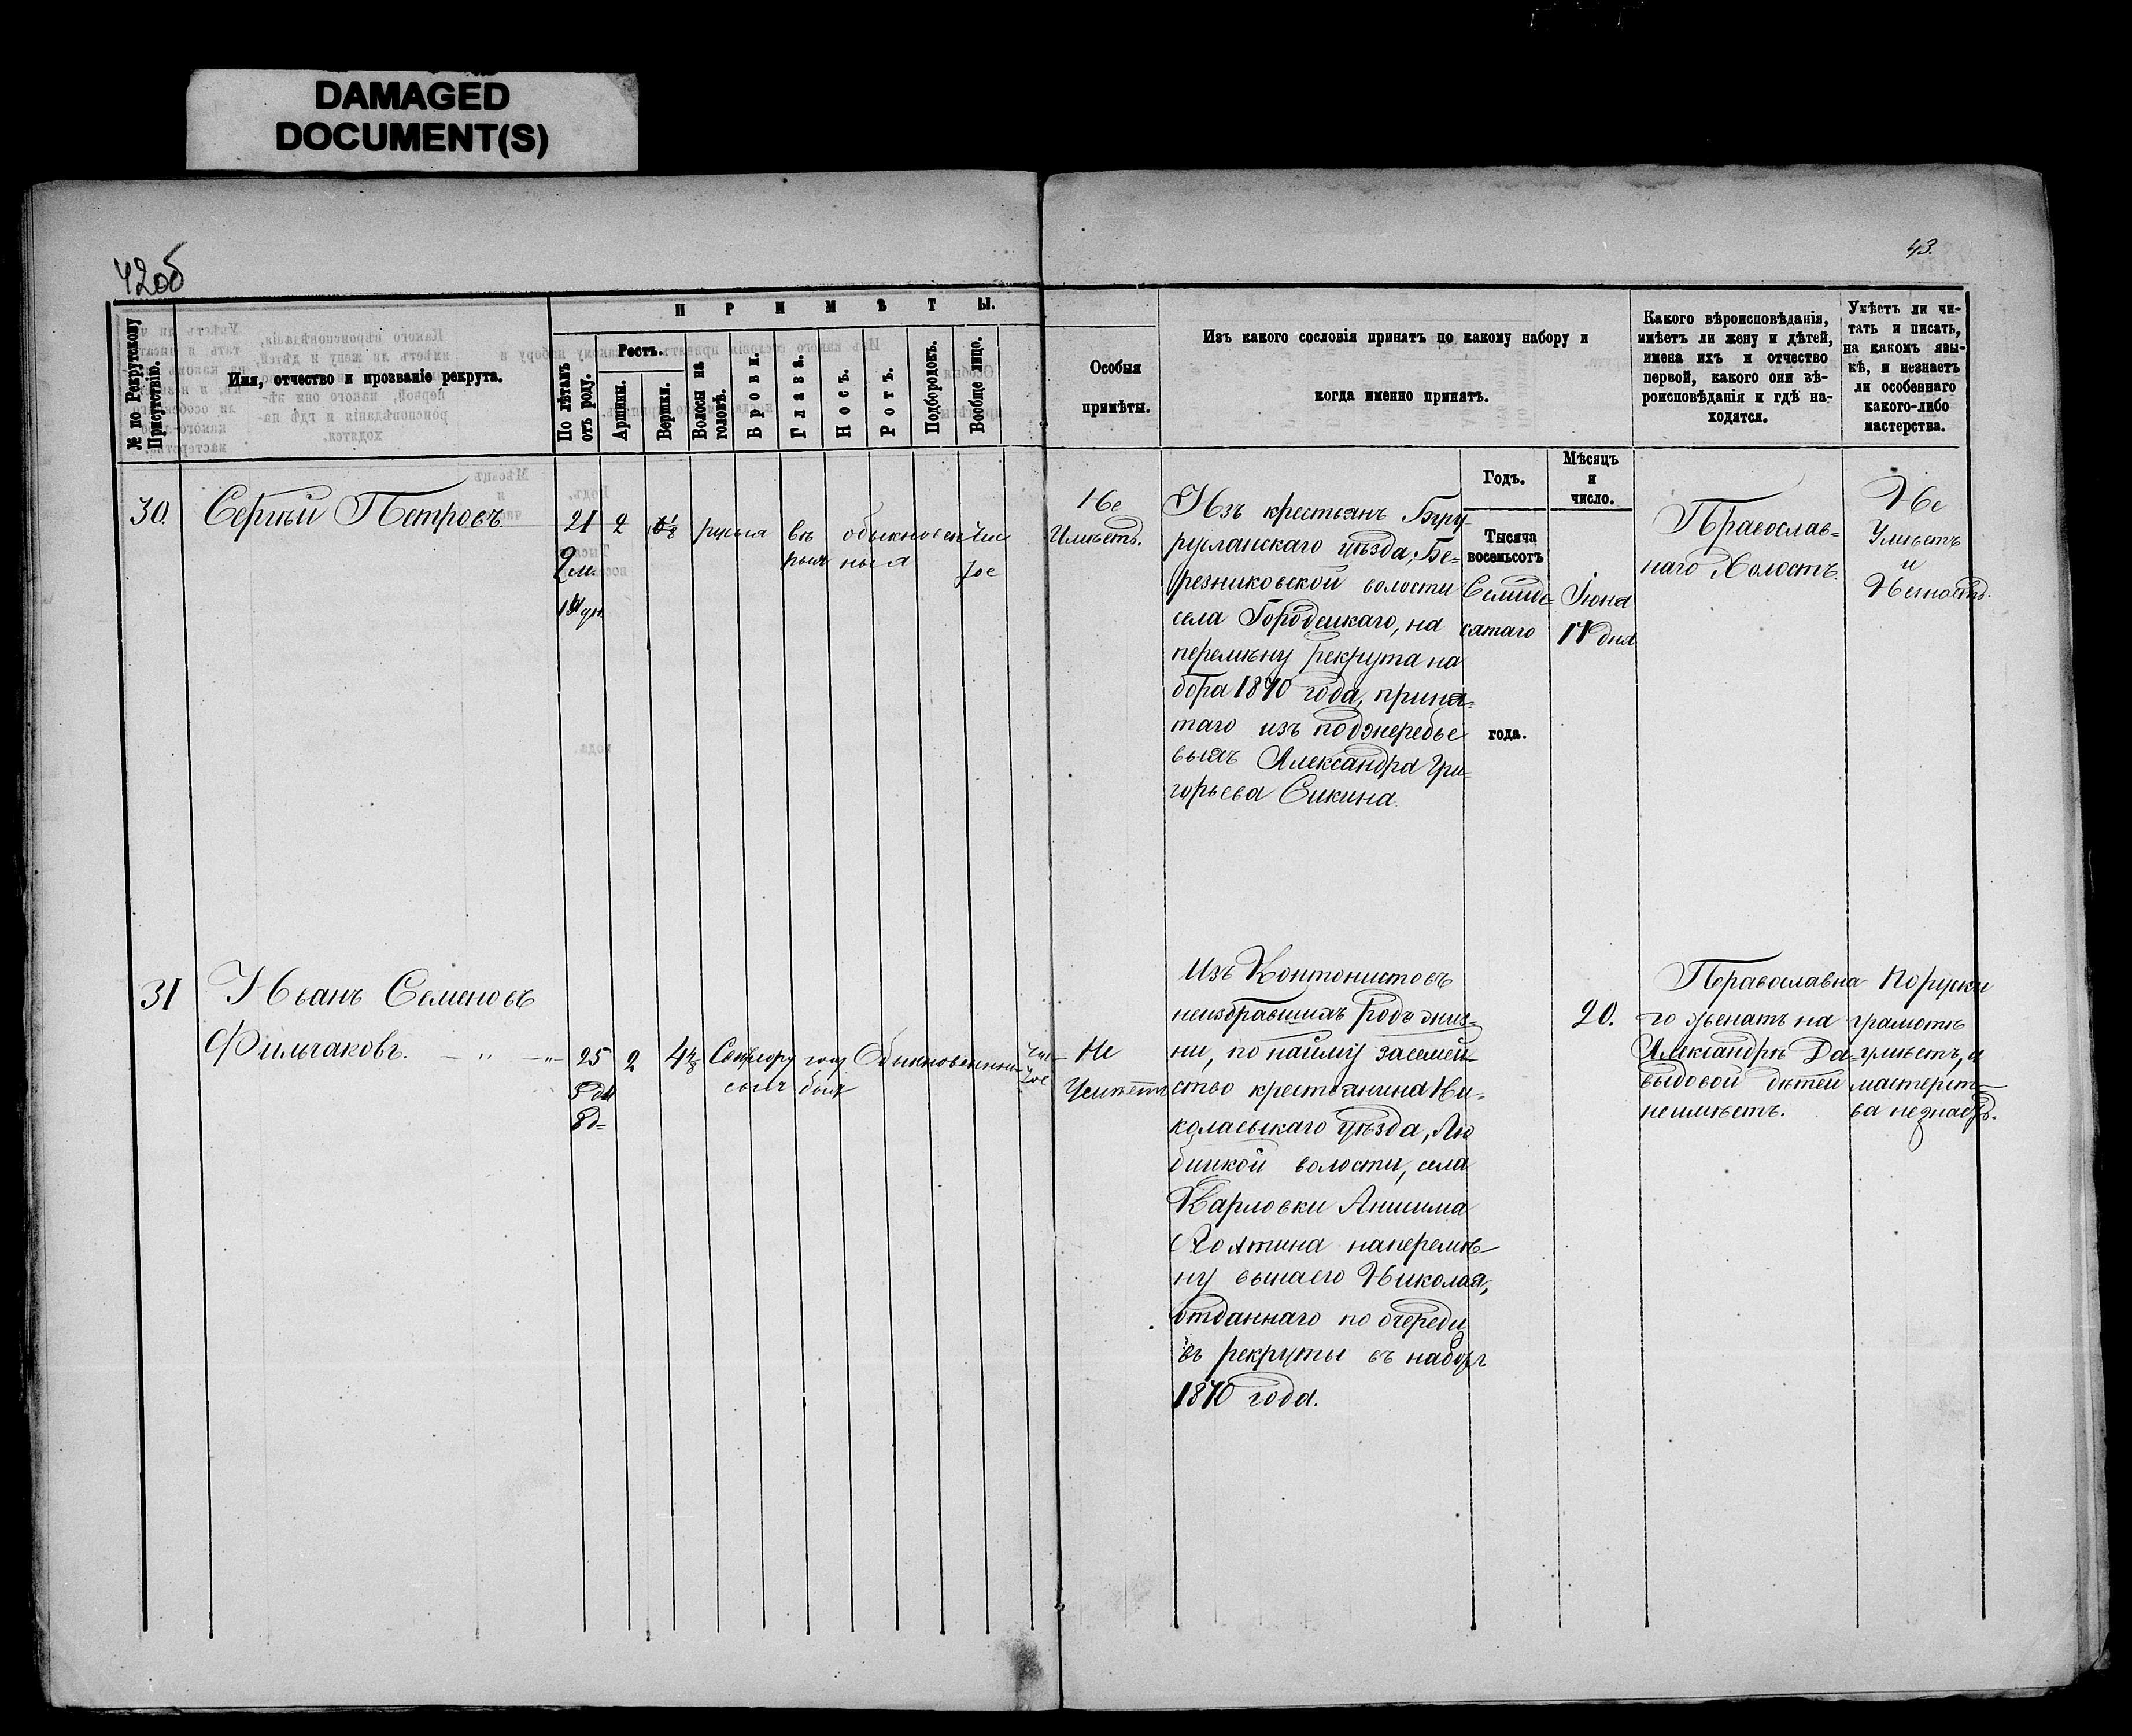 DAMAGED
DOCUMENT(S)
42об
43.
№ по Рекрутскому
Присутствію.
Имя, отчество и прозваніе рекрута.
ПРИМѢТЫ.
По лѣтамъ
отъ роду.
Ростъ.
Аршины.
Вершки.
Волосы на
головѣ.
Брови.
Глаза.
Носъ.
Ротъ.
Подбородокъ.
Вообще лицо.
Особыя
примѣты.
Изъ какого сословія принятъ по какому набору и
когда именно принятъ.
Какого вѣроисповѣданія,
имѣетъ ли жену и дѣтей,
имена ихъ и отчество
первой, какого они вѣ-
роисповѣданія и гдѣ на-
ходятся.
Умѣетъ ли чи-
тать и писать,
на какомъ язы-
кѣ, и незнаетъ
ли особеннаго
какого-либо
мастерства.
Годъ.
Мѣсяцъ
и
число.
Тысяча
восемьсотъ
Семиде-
сятаго
года.
30.
Сергѣй Петровъ
21
2 м.
2
русыя
обыкновен
ныя
чис
тое
Не
Имѣетъ.
Изъ крестьянъ Бугу-
русланскаго уѣзда, Бе-
резниковской волости
села Городецкаго, на
перемѣну рекрута на
бора 1870 года, приня-
таго изъ поджеребье
выхъ Александра Гри-
горьева Сикина.
Іюня
17 дня
Православ-
наго Холостъ.
Не
Умѣетъ
и
Незнаетъ.
31
Иванъ Семеновъ
Фильчаковъ. — " — "
25
2
Свѣтлору
сыя
голу
быя
Обыкновенныя
чис-
тое
Не
Имѣетъ
Изъ Контонистовъ
неизбравшихъ родъ жиз-
ни, по найму за семей-
ство крестьянина Ни-
колаевскаго уѣзда, Лю
бицкой волости, села
Карловки Анисима
наперемѣ-
ну сына его Николая,
отданнаго по очереди
въ рекруты въ наборъ
1870 года.
20.
Православна
го женатъ на
Александрѣ Да-
выдовой дѣтей
неимѣетъ.
Поруски
грамотѣ
умѣетъ, а
мастерст-
ва незнаетъ.